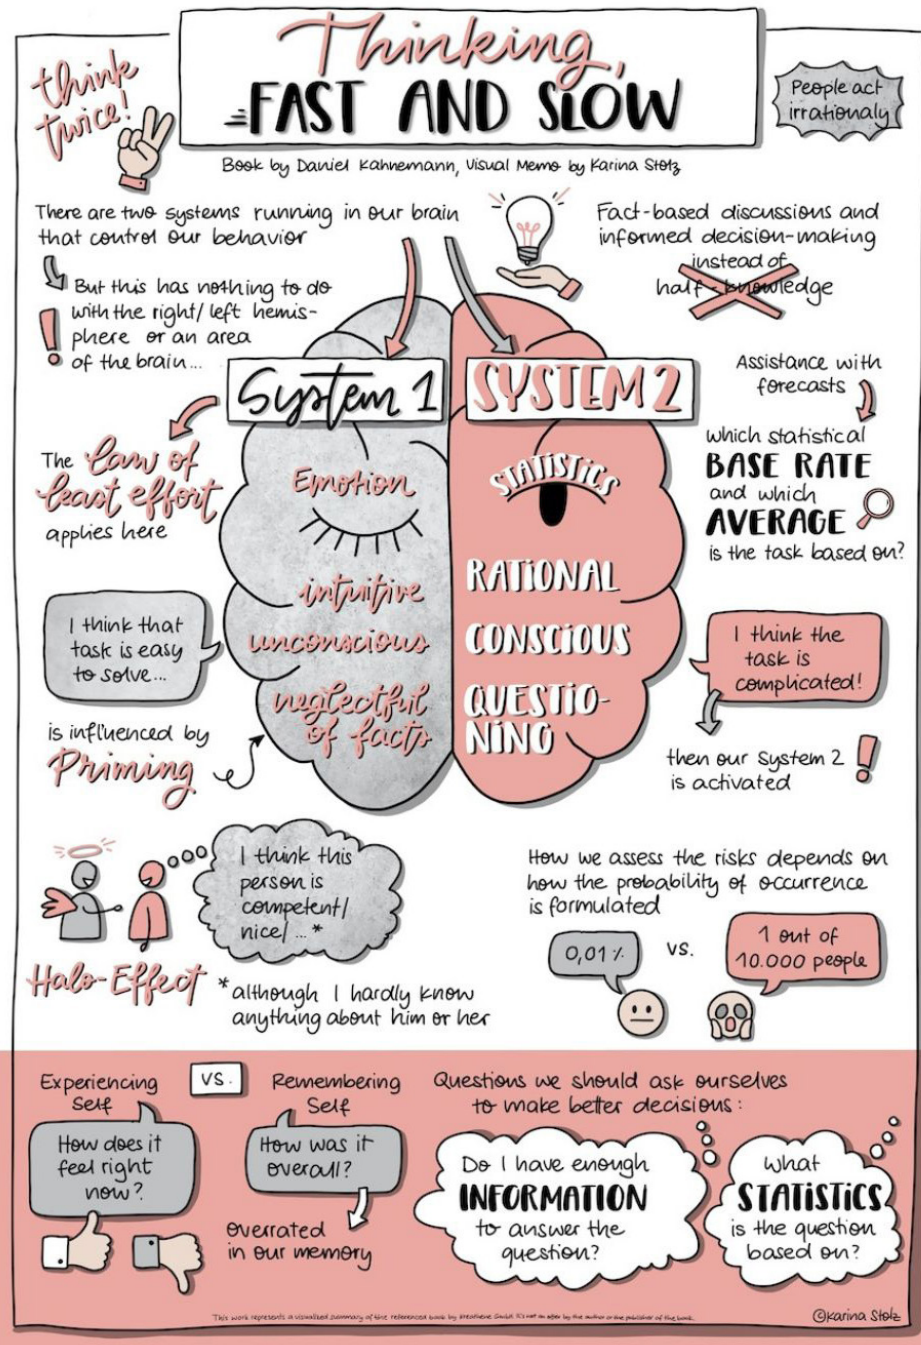 Thinking,
FAST AND SLOW
think
twice!
People act
irrationaly
Book by Daniel Kahnemann, Visual Memo by Karina Stolz
There are two systems running in our brain
that control our behavior
But this has nothing to do
with the right/left hemis-
phere or an area
of the brain...
Fact-based discussions and
informed decision-making
instead of
half-knowledge
System 1
SYSTEM 2
The law of
least effort
applies here
Emotion
intuitive
unconscious
neglectful
of facts
STATISTICS
RATIONAL
CONSCIOUS
QUESTIO-
NING
Assistance with
forecasts
which statistical
BASE RATE
and which
AVERAGE
is the task based on?
I think that
task is easy
to solve...
is influenced by
Priming
I think the
task is
complicated!
then our System 2
is activated
I think this
person is
competent/
nice/ ... *
Halo-Effect
*although I hardly know
anything about him or her
How we assess the risks depends on
how the probability of occurrence
is formulated
0,01 %
vs.
1 out of
10.000 people
Experiencing
Self
vs.
Remembering
Self
How does it
feel right
now?
How was it
overall?
overrated
in our memory
Questions we should ask ourselves
to make better decisions:
Do I have enough
INFORMATION
to answer the
question?
What
STATISTICS
is the question
based on?
This work represents a visualised summary of the referenced book by GmbH. It's not an offer by the author or the publisher of the book.
©Karina Stolz